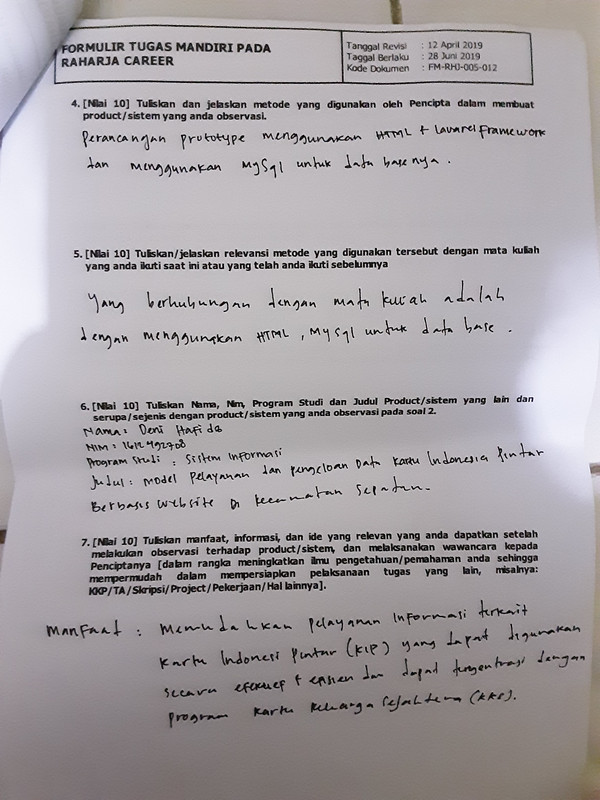 FORMULIR TUGAS MANDIRI PADA
RAHARJA CAREER
Tanggal Revisi : 12 April 2019
Taggal Berlaku : 28 Juni 2019
Kode Dokumen : FM-RHJ-005-012
4. [Nilai 10] Tuliskan dan jelaskan metode yang digunakan oleh Pencipta dalam membuat
product/sistem yang anda observasi.
Perancangan prototype menggunakan HTML + Lavarel Framework
dan menggunakan MySql untuk data base nya.
5. [Nilai 10] Tuliskan/jelaskan relevansi metode yang digunakan tersebut dengan mata kuliah
yang anda ikuti saat ini atau yang telah anda ikuti sebelumnya
Yang berhubungan dengan mata kuliah adalah
dengan menggunakan HTML, MySql untuk data base.
6. [Nilai 10] Tuliskan Nama, Nim, Program Studi dan Judul Product/sistem yang lain dan
serupa/sejenis dengan product/sistem yang anda observasi pada soal 2.
Nama : Deni Hafi
NIM : 1612492708
Program Studi : Sistem Informasi
Judul : Model Pelayanan dan pengeloan Data Kartu Indonesia Pintar
Berbasis Website Di kecamatan Sepatan.
7. [Nilai 10] Tuliskan manfaat, informasi, dan ide yang relevan yang anda dapatkan setelah
melakukan observasi terhadap product/sistem, dan melaksanakan wawancara kepada
Penciptanya [dalam rangka meningkatkan ilmu pengetahuan/pemahaman anda sehingga
mempermudah dalam mempersiapkan pelaksanaan tugas yang lain, misalnya:
KKP/TA/Skripsi/Project/Pekerjaan/Hal lainnya].
Manfaat : Memudahkan pelayanan Informasi terkait
Kartu Indonesi Pintar (KIP) yang dapat digunakan
secara efektif + efisien dan dapat dengan
program Kartu Keluarga Sejahtera (KKS).